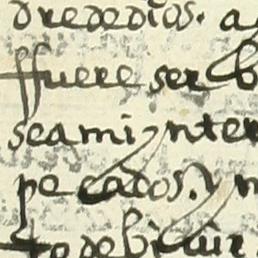 dre de dios. a
ffuere ser b
sea mi ynter
pecados. y m
to de biuir